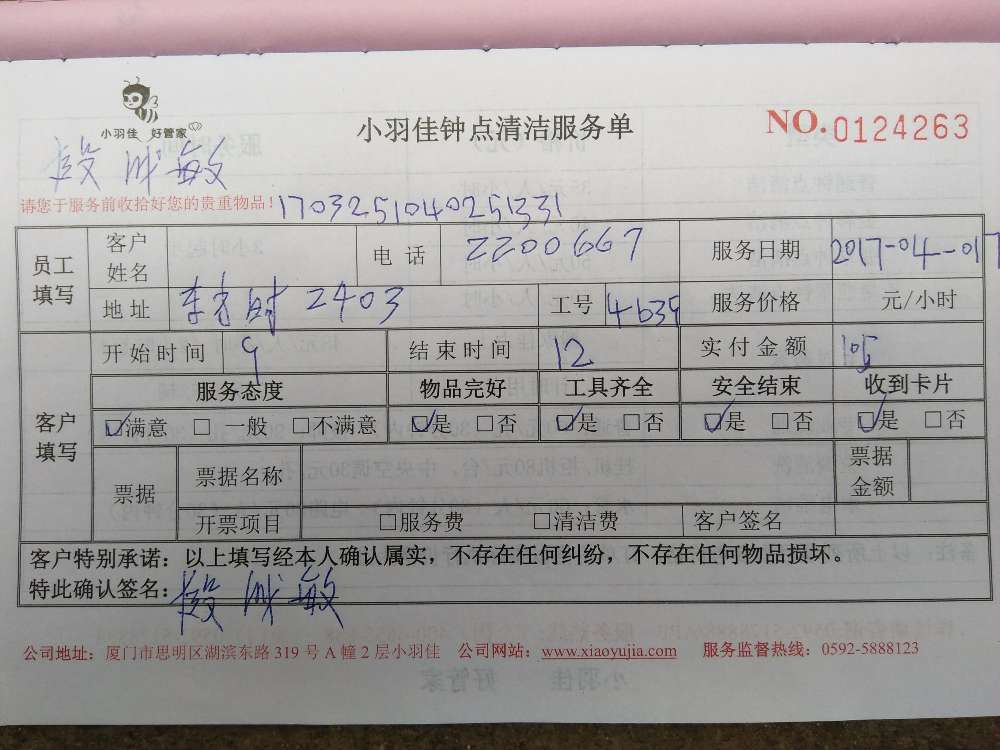 小羽佳 好管家
小羽佳钟点清洁服务单
NO.0124263
请您于服务前收拾好您的贵重物品!
1703251040251331
员工填写 客户姓名 电话 2200667 服务日期 2017-04-017
地址 2403 工号 4639 服务价格 元/小时
客户填写 开始时间 9 结束时间 12 实付金额 105
服务态度 物品完好 工具齐全 安全结束 收到卡片
☑满意 □一般 □不满意 ☑是 □否 ☑是 □否 ☑是 □否 ☑是 □否
票据 票据名称 票据金额
开票项目 □服务费 □清洁费 客户签名
客户特别承诺：以上填写经本人确认属实，不存在任何纠纷，不存在任何物品损坏。
特此确认签名：
公司地址：厦门市思明区湖滨东路 319 号 A 幢 2 层小羽佳 公司网站：www.xiaoyujia.com 服务监督热线：0592-5888123